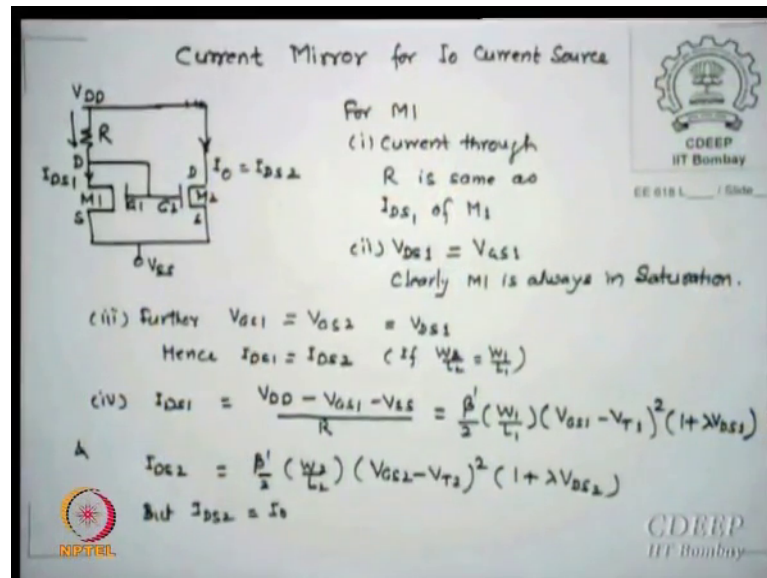 Current Mirror for Io Current Source
VDD
R
D
IDS1
M1
S
G1
G2
D
M2
S
Io = IDS2
VSS
For M1
(i) Current through
R is same as
IDS1 of M1
(ii) VDS1 = VGS1
Clearly M1 is always in Saturation.
(iii) Further VGS1 = VGS2 = VDS1
Hence IDS1 = IDS2 (If W2/L2 = W1/L1)
(iv) IDS1 = (VDD - VGS1 - VSS)/R = β'/2 (W1/L1) (VGS1 - VT1)² (1 + λVDS1)
&
IDS2 = β'/2 (W2/L2) (VGS2 - VT2)² (1 + λVDS2)
But IDS2 = Io
CDEEP
IIT Bombay
EE 618 L____ / Slide____
NPTEL
CDEEP
IIT Bombay